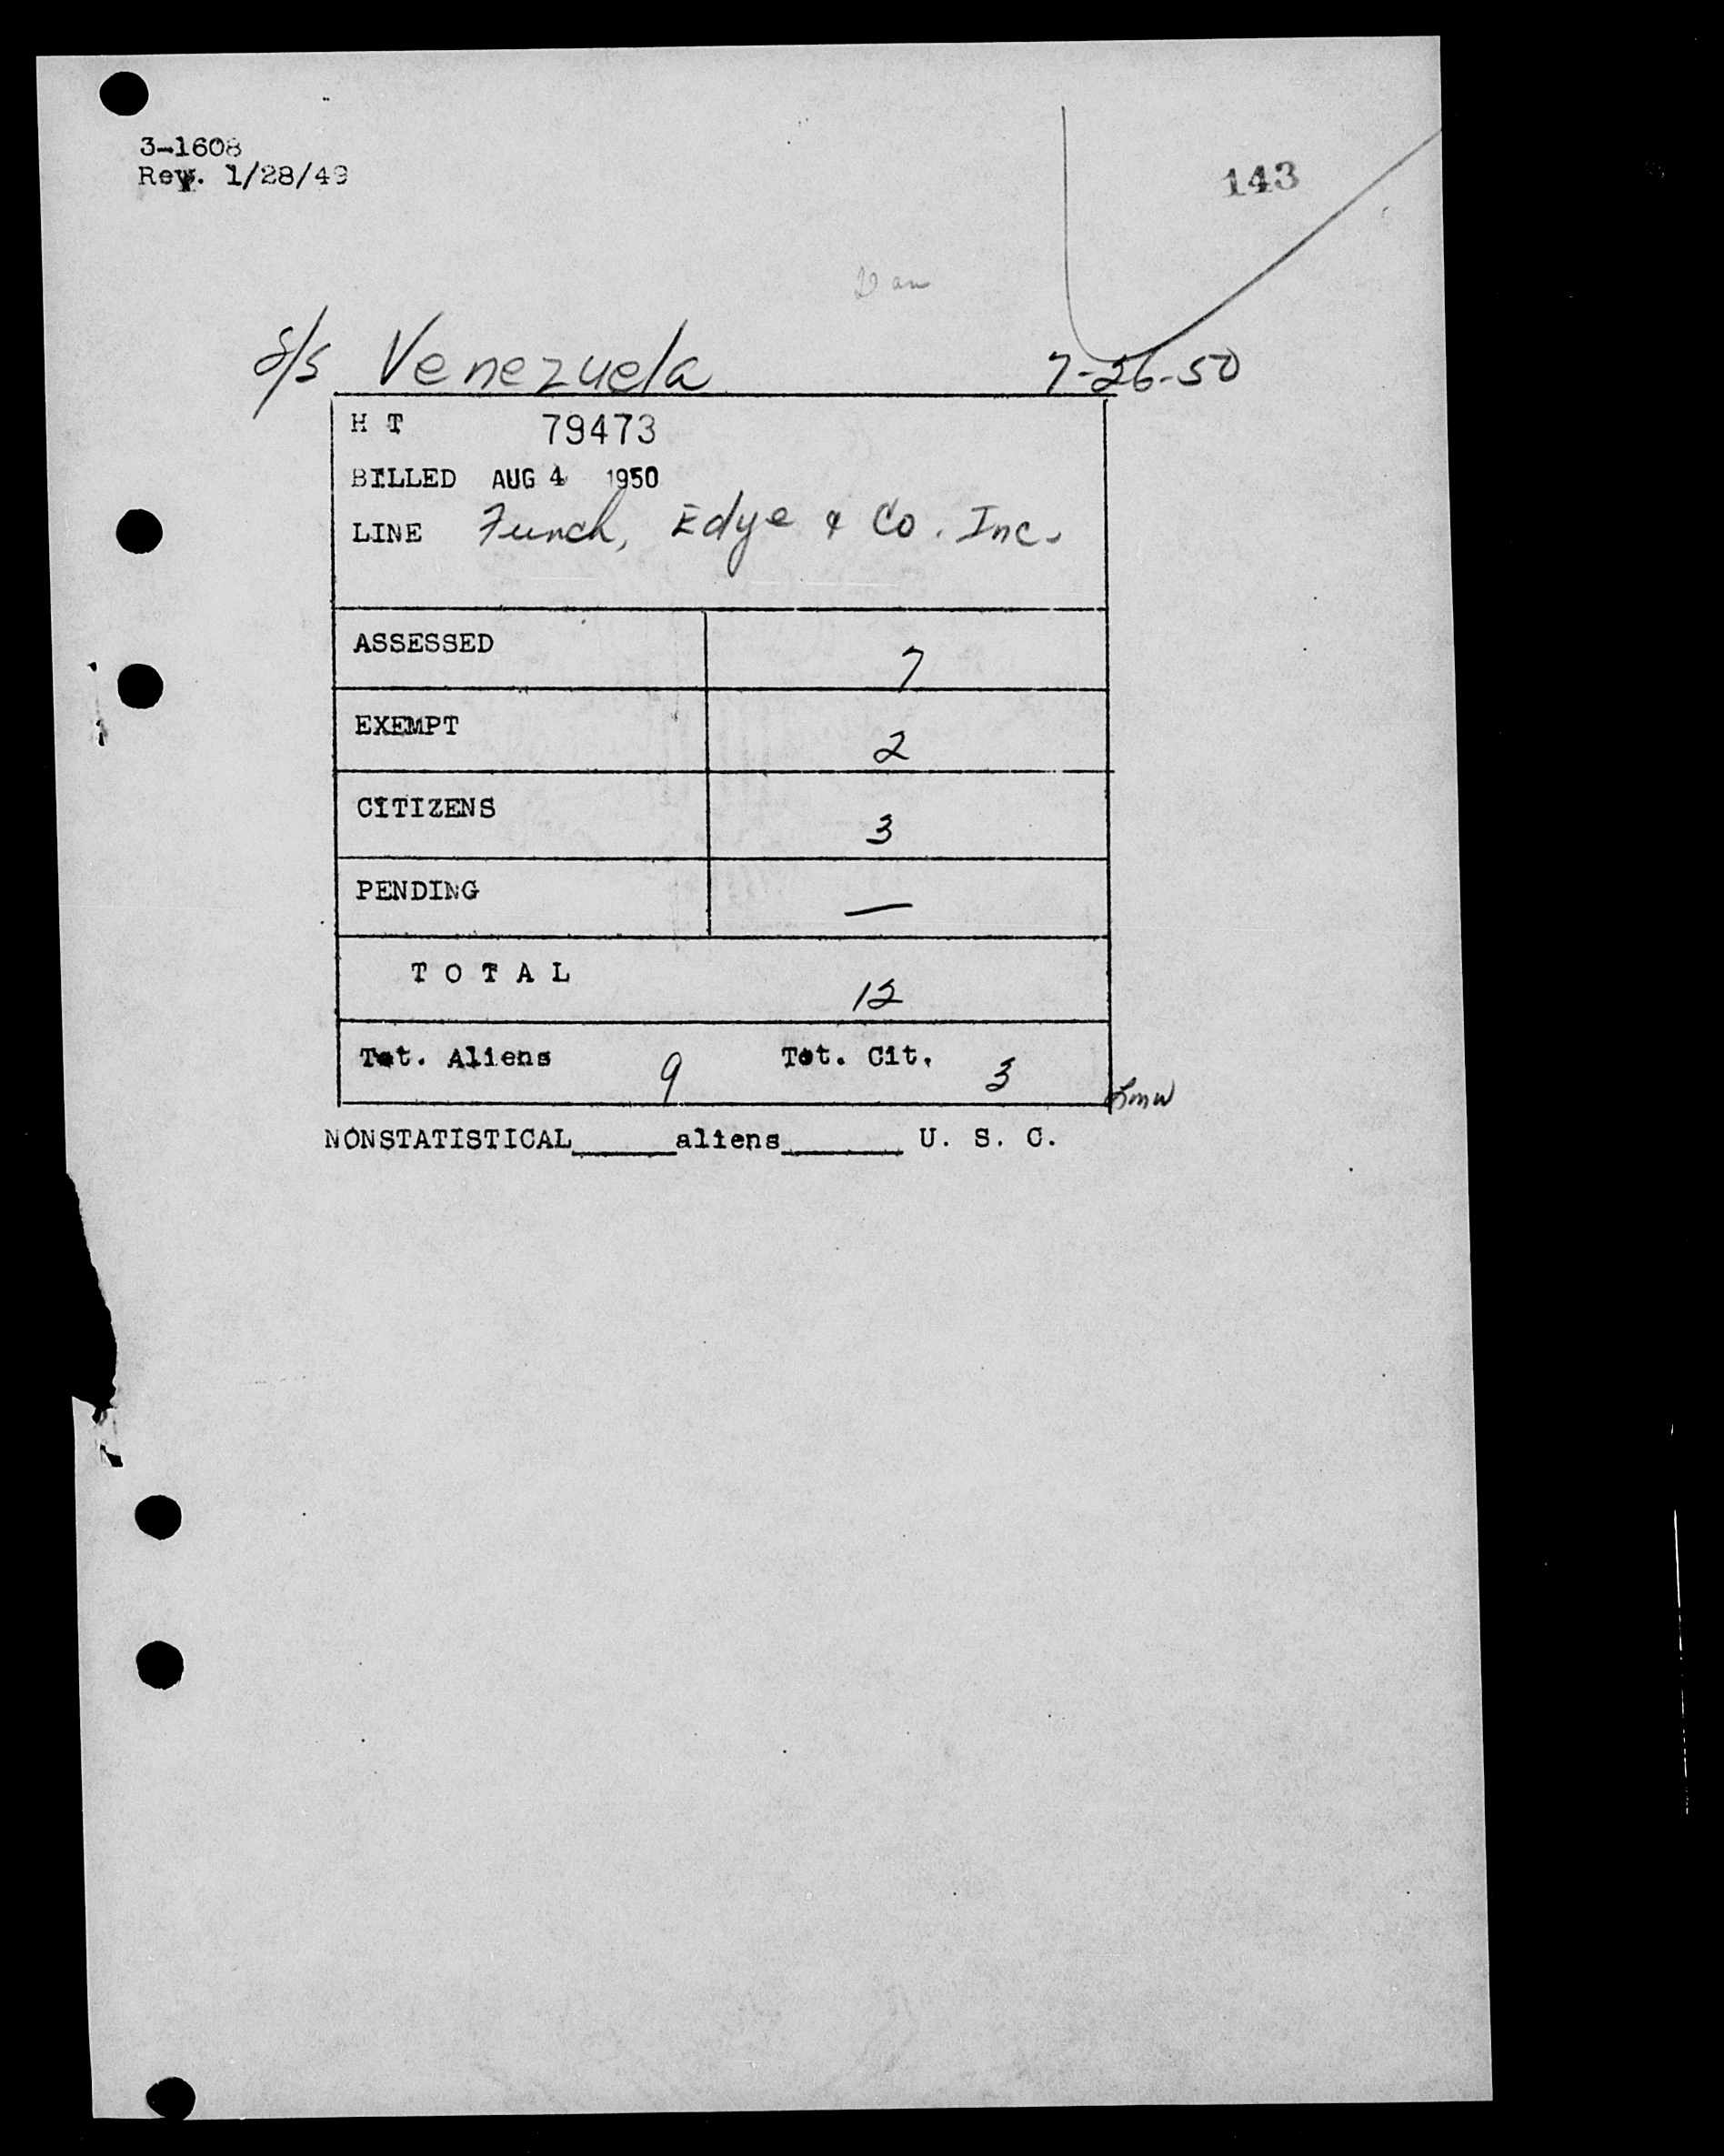 3-1608
Rev. 1/28/49
143
Dan
S/S Venezuela 7-26-50
H T 79473
BILLED AUG 4 1950
LINE Funch, Edye & Co. Inc.
ASSESSED 7
EXEMPT 2
CITIZENS 3
PENDING —
T O T A L 12
Tot. Aliens 9 Tot. Cit. 3
NONSTATISTICAL______aliens_______ U. S. C.